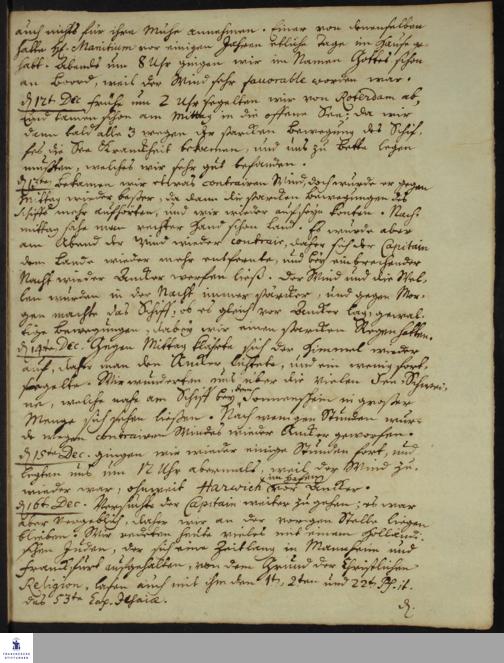 auch nichts für ihre Mühe annehmen. Einer von denenselben
hatte H. Manitium vor einigen Jahren etliche Tage im Hause ge-
habt. Abends um 8 Uhr gingen wir im Namen Gottes schon
an Boord, weil der Wind sehr favorable worden war.
d. 12t. Dec. frühe um 2 Uhr segelten wir von Roterdam ab,
und kamen schon am Mittag in die offene See; da wir
denn bald alle 3 wegen der starcken Bewegung des Schif-
fes, die See-Kranckheit bekamen, und uns zu Bette legen
mußten, welches wir sehr gut befanden.
d. 13ten bekamen wir etwas contrairen Wind, doch wurde er gegen
Mittag wieder besser, da denn die starcken Bewegungen des
Schiffs mehr aufhörten, und wir wieder aufseyn konten. Nach-
mittag sahe man rechter Hand schon Land. Es wurde aber
am Abend der Wind wieder contrair, daher sich der Capitain
dem Lande wieder mehr entfernte, und bey einbrechender
Nacht wieder Ancker werfen ließ. Der Wind und die Wel-
len wurden in der Nacht immer stärcker, und gegen Mor-
gen machte das Schiff, ob es gleich vor Ancker lag, gewal-
tige Bewegungen, dabey wir einen starcken Regen hatten.
d. 14te Dec. Gegen Mittag klährte sich der Himmel wieder
auf, daher man den Ancker lichtete, und ein wenig fort-
segelte. Wir wunderten uns über die vielen See-Schwei-
ne, welche nahe am Schiff bey dem Sonnenschein in großer
Menge sich sehen ließen. Nach wenigen Stunden wur-
de wegen contrairen Windes wieder Ancker geworfen.
d. 15te Dec. gingen wir wieder einige Stunden fort, und
legten uns um 12 Uhr abermals, weil der Wind zu-
wieder war, ohnweit Harwich im Hafen vor Ancker.
d. 16t. Dec. Versuchte der Capitain weiter zu gehen; es war
aber vergeblich, daher wir an der vorigen Stelle liegen
blieben. Wir redeten heute vieles mit einem Holländi-
schen Juden, der sich eine Zeitlang in Mannheim und
Franckfurt aufgehalten, von dem Grund der Christlichen
Religion, lasen auch mit ihm den 1t, 2ten und 22t. Ps. it.
das 53te Cap. Jesaiæ.
d.
FRANCKESCHE
STIFTUNGEN